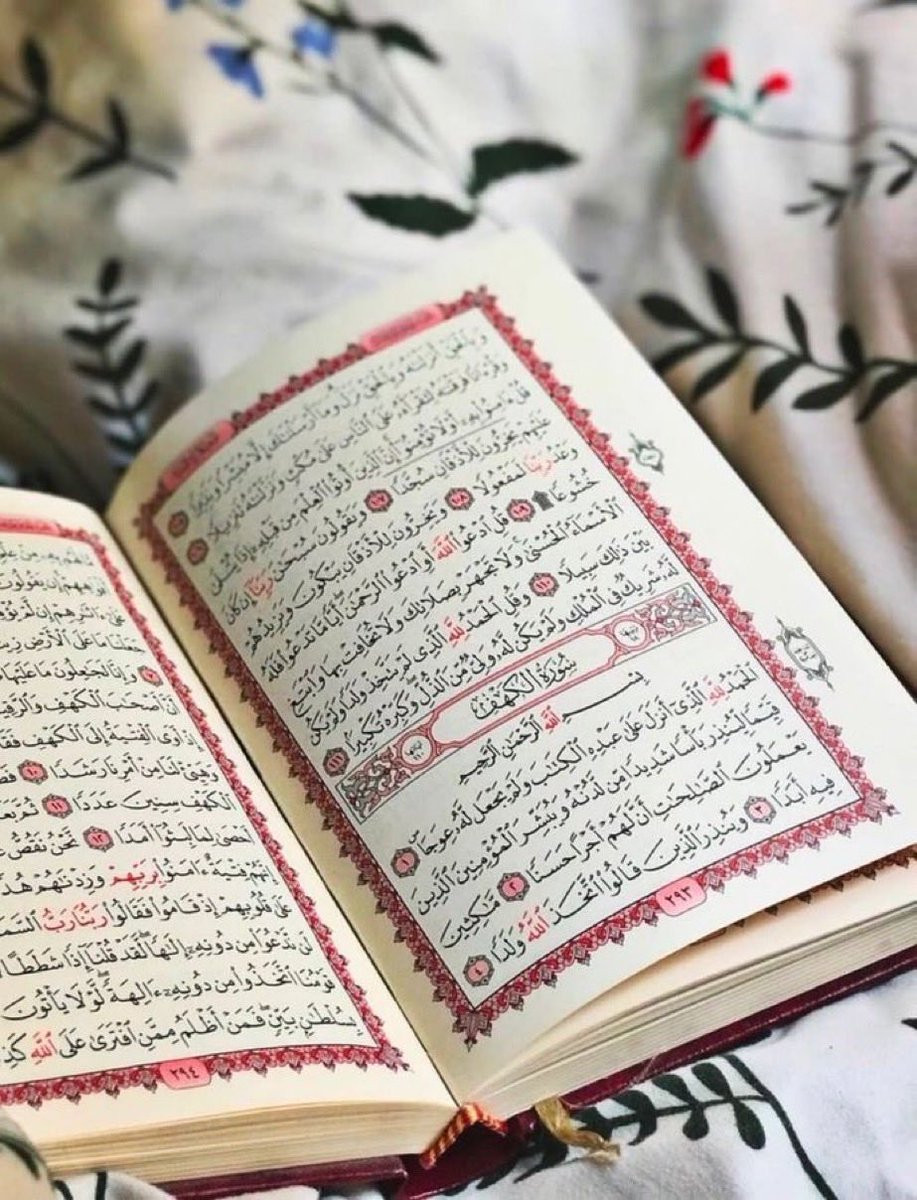 وَبِٱلْحَقِّ أَنزَلْنَٰهُ وَبِٱلْحَقِّ نَزَلَ وَمَآ أَرْسَلْنَٰكَ إِلَّا مُبَشِّرًا وَنَذِيرًا ١٠٥
وَقُرْءَانًا فَرَقْنَٰهُ لِتَقْرَأَهُۥ عَلَى ٱلنَّاسِ عَلَىٰ مُكْثٍ وَنَزَّلْنَٰهُ تَنزِيلًا ١٠٦
قُلْ ءَامِنُوا۟ بِهِۦٓ أَوْ لَا تُؤْمِنُوٓا۟ إِنَّ ٱلَّذِينَ أُوتُوا۟ ٱلْعِلْمَ مِن قَبْلِهِۦٓ إِذَا يُتْلَىٰ
عَلَيْهِمْ يَخِرُّونَ لِلْأَذْقَانِ سُجَّدًا ١٠٧ وَيَقُولُونَ سُبْحَٰنَ رَبِّنَآ إِن كَانَ
وَعْدُ رَبِّنَا لَمَفْعُولًا ١٠٨ وَيَخِرُّونَ لِلْأَذْقَانِ يَبْكُونَ وَيَزِيدُهُمْ
خُشُوعًا ١٠٩ قُلِ ٱدْعُوا۟ ٱللَّهَ أَوِ ٱدْعُوا۟ ٱلرَّحْمَٰنَ أَيًّا مَّا تَدْعُوا۟ فَلَهُ
ٱلْأَسْمَآءُ ٱلْحُسْنَىٰ وَلَا تَجْهَرْ بِصَلَاتِكَ وَلَا تُخَافِتْ بِهَا وَٱبْتَغِ
بَيْنَ ذَٰلِكَ سَبِيلًا ١١٠ وَقُلِ ٱلْحَمْدُ لِلَّهِ ٱلَّذِى لَمْ يَتَّخِذْ وَلَدًا وَلَمْ يَكُن
لَّهُۥ شَرِيكٌ فِى ٱلْمُلْكِ وَلَمْ يَكُن لَّهُۥ وَلِىٌّ مِّنَ ٱلذُّلِّ وَكَبِّرْهُ تَكْبِيرًا ١١١
سُورَةُ ٱلْكَهْفِ
بِسْمِ ٱللَّهِ ٱلرَّحْمَٰنِ ٱلرَّحِيمِ
ٱلْحَمْدُ لِلَّهِ ٱلَّذِىٓ أَنزَلَ عَلَىٰ عَبْدِهِ ٱلْكِتَٰبَ وَلَمْ يَجْعَل لَّهُۥ عِوَجَا ١
قَيِّمًا لِّيُنذِرَ بَأْسًا شَدِيدًا مِّن لَّدُنْهُ وَيُبَشِّرَ ٱلْمُؤْمِنِينَ ٱلَّذِينَ
يَعْمَلُونَ ٱلصَّٰلِحَٰتِ أَنَّ لَهُمْ أَجْرًا حَسَنًا ٢ مَّٰكِثِينَ
فِيهِ أَبَدًا ٣ وَيُنذِرَ ٱلَّذِينَ قَالُوا۟ ٱتَّخَذَ ٱللَّهُ وَلَدًا ٤
٢٩٣
لَهُم بِهِۦ مِنْ عِلْ
أَفْوَٰهِهِمْ إِن يَقُولُونَ
عَلَىٰٓ ءَاثَٰرِهِمْ إِن لَّمْ يُؤْ
جَعَلْنَا مَا عَلَى ٱلْأَرْضِ زِ
وَإِنَّا لَجَٰعِلُونَ مَا عَلَيْهَا
أَنَّ أَصْحَٰبَ ٱلْكَهْفِ وَٱلرَّقِ
إِذْ أَوَى ٱلْفِتْيَةُ إِلَى ٱلْكَهْفِ فَقَا
وَهَيِّئْ لَنَا مِنْ أَمْرِنَا رَشَدًا ١٠ فَضَ
ٱلْكَهْفِ سِنِينَ عَدَدًا ١١ ثُمَّ بَعَ
أَحْصَىٰ لِمَا لَبِثُوٓا۟ أَمَدًا ١٢ نَّحْنُ نَقُصُّ عَ
إِنَّهُمْ فِتْيَةٌ ءَامَنُوا۟ بِرَبِّهِمْ وَزِدْنَٰهُمْ هُدً
عَلَىٰ قُلُوبِهِمْ إِذْ قَامُوا۟ فَقَالُوا۟ رَبُّنَا رَبُّ ٱلسَّمَ
لَن نَّدْعُوَا۟ مِن دُونِهِۦٓ إِلَٰهًا لَّقَدْ قُلْنَآ إِذًا شَطَطًا
قَوْمُنَا ٱتَّخَذُوا۟ مِن دُونِهِۦٓ ءَالِهَةً لَّوْلَا يَأْتُونَ
بِسُلْطَٰنٍ بَيِّنٍ فَمَنْ أَظْلَمُ مِمَّنِ ٱفْتَرَىٰ عَلَى ٱللَّهِ كَذِ
٢٩٤